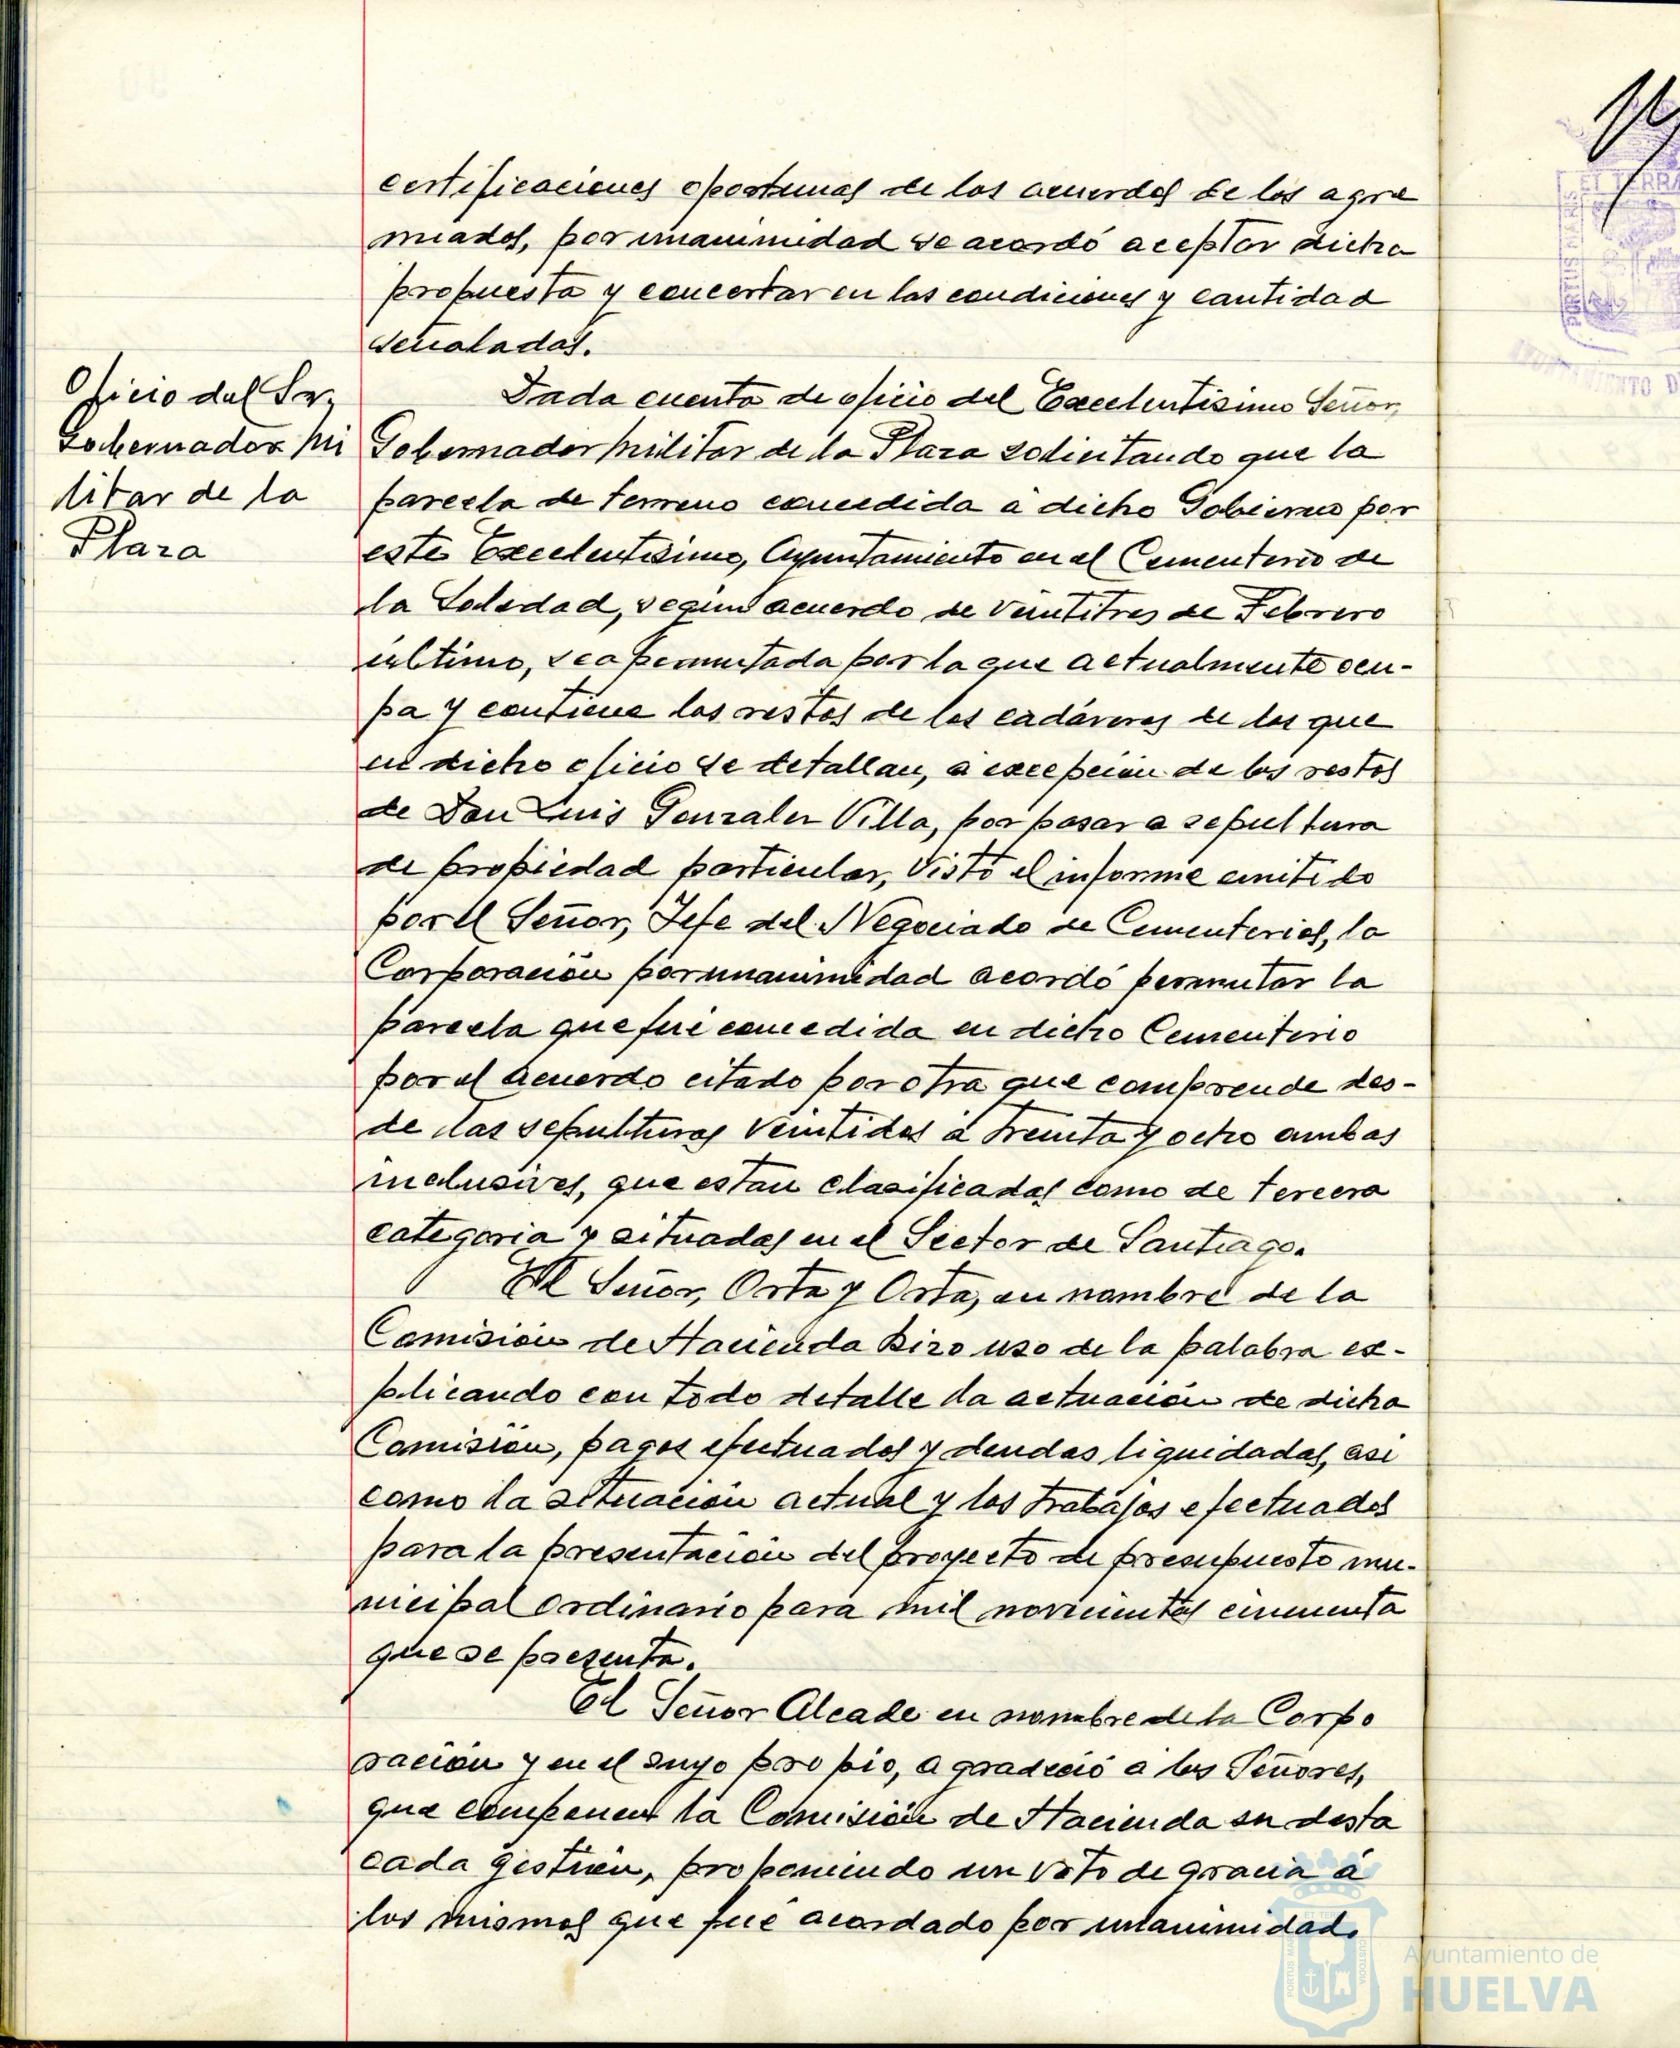 certificaciones oportunas de los acuerdos de los agre
miados, por unanimidad se acordó aceptar dicha
propuesta y concertar en las condiciones y cantidad
señaladas.
Oficio del Sr.
Gobernador Mi
litar de la
Plaza
Dada cuenta de oficio del Excelentisimo Señor,
Gobernador Militar de la Plaza solicitando que la
parcela de terreno concedida a dicho Gobierno por
este Excelentisimo, Ayuntamiento en el Cementerio de
la Soledad, segun acuerdo de veintitres de Febrero
último, sea permutada por la que actualmente ocu-
pa y contiene los restos de los cadáveres de los que
en dicho oficio se detallan, a excepcion de los restos
de Don Luis Gonzalez Villa, por pasar a sepultura
de propiedad particular, Visto el informe emitido
por el Señor, Jefe del Negociado de Cementerios, la
Corporación por unanimidad acordó permutar la
parcela que fué concedida en dicho Cementerio
por el acuerdo citado por otra que comprende des-
de las sepulturas veintidos a treinta y ocho ambas
inclusives, que estan clasificadas como de tercera
categoria y situadas en el Sector de Santiago.
El Señor, Orta y Orta, en nombre de la
Comisión de Hacienda hizo uso de la palabra ex-
plicando con todo detalle la actuación de dicha
Comisión, pagos efectuados y deudas liquidadas, asi
como la situación actual y los trabajos efectuados
para la presentación del proyecto de presupuesto mu-
nicipal ordinario para mil novecientos cincuenta
que se presenta.
El Señor Alcade en nombre de la Corpo
ración y en el suyo propio, agradeció a los Señores,
que componen la Comisión de Hacienda su desta
cada gestión, proponiendo un voto de gracia á
los mismos que fué acordado por unanimidad.
ET TERRA
PORTUS MARIS
Ayuntamiento de
HUELVA
PORTUS MARIS
ET TERRA
CUSTODIA